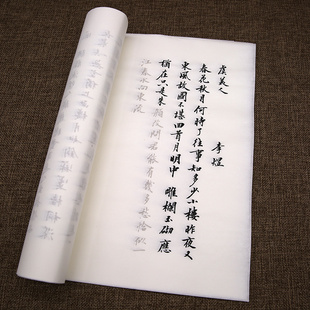 虞美人 李煜
春花秋月何時了往事知多少小樓昨夜又
東風故國不堪回首月明中 雕欄玉砌應
猶在只是朱顏改問君能有幾多愁恰似一
江春水向東流